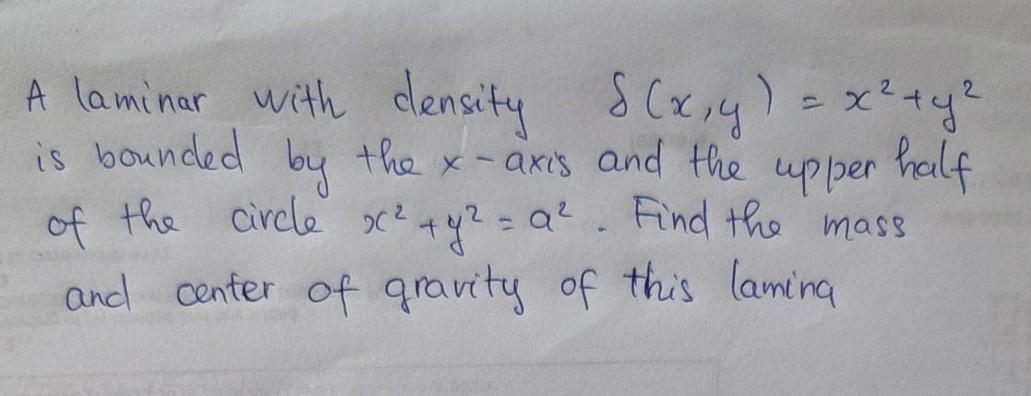 A laminar with density δ(x,y) = x²+y²
is bounded by the x-axis and the upper half
of the circle x²+y²=a². Find the mass
and center of gravity of this lamina